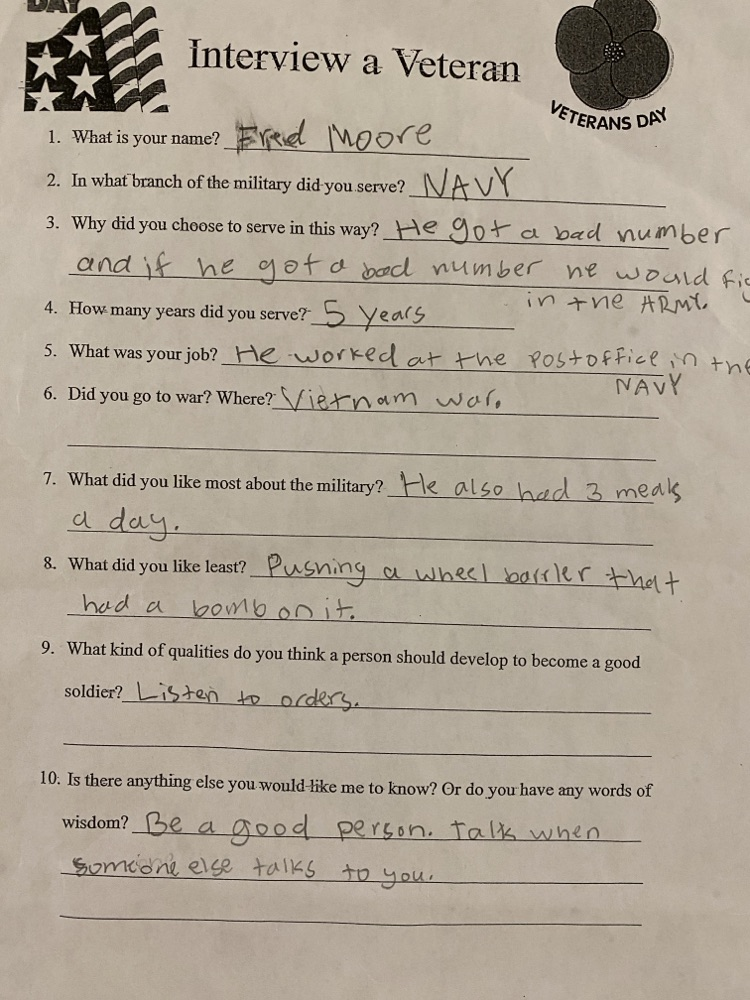 DAY
Interview a Veteran
VETERANS DAY
1. What is your name? Fred Moore
2. In what branch of the military did you serve? NAVY
3. Why did you choose to serve in this way? He got a bad number
and if he got a bad number he would
in the ARMY.
4. How many years did you serve? 5 years
5. What was your job? He worked at the postoffice in the
NAVY
6. Did you go to war? Where? Vietnam war.
7. What did you like most about the military? He also had 3 meals
a day.
8. What did you like least? Pushing a wheel barrler that
had a bomb on it.
9. What kind of qualities do you think a person should develop to become a good
soldier? Listen to orders.
10. Is there anything else you would like me to know? Or do you have any words of
wisdom? Be a good person. Talk when
someone else talks to you.